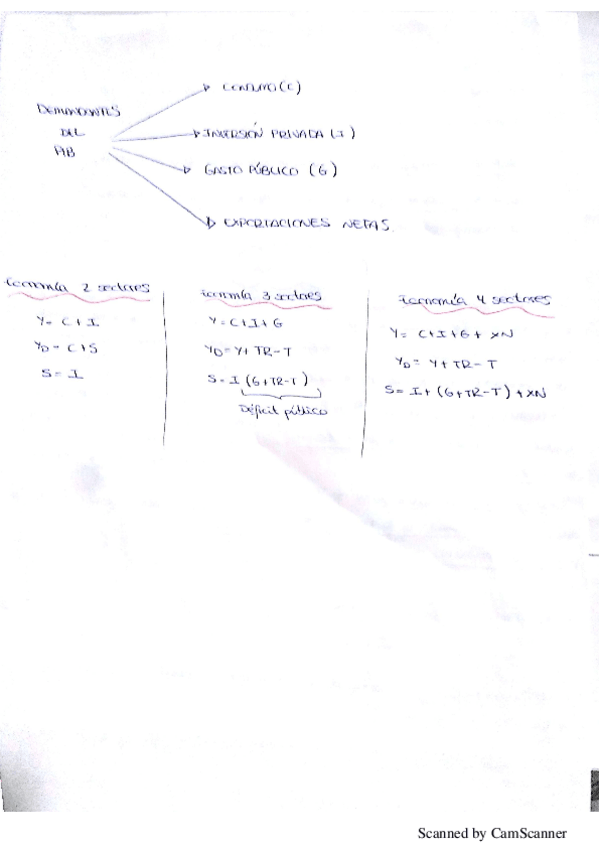 CONSUMO (C)
DEMANDANTES
DEL
PIB
INVERSIÓN PRIVADA (I)
GASTO PÚBLICO (G)
EXPORTACIONES NETAS.
Economía 2 sectores
Y = C + I
YD = C + S
S = I
Economía 3 sectores
Y = C + I + G
YD = Y + TR - T
S = I (G + TR - T)
Déficit público
Economía 4 sectores
Y = C + I + G + XN
YD = Y + TR - T
S = I + (G + TR - T) + XN
Scanned by CamScanner